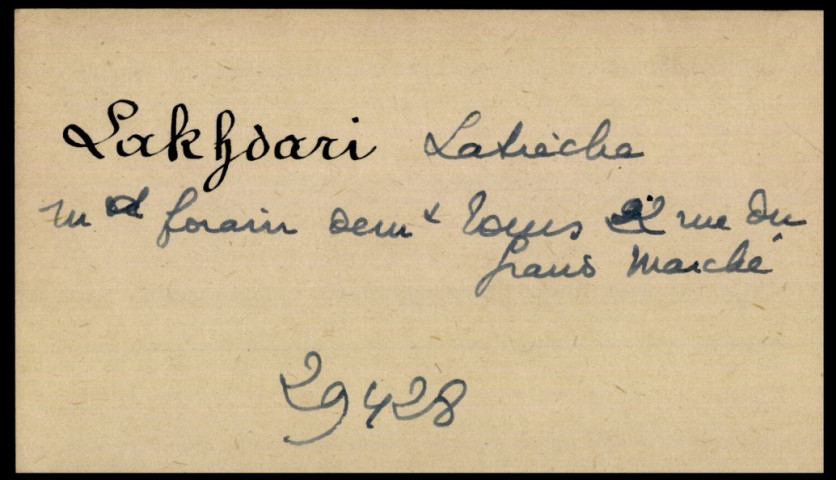 Lakhdari Latrèche
md forain demt Tours rue du
Grand Marché
29428